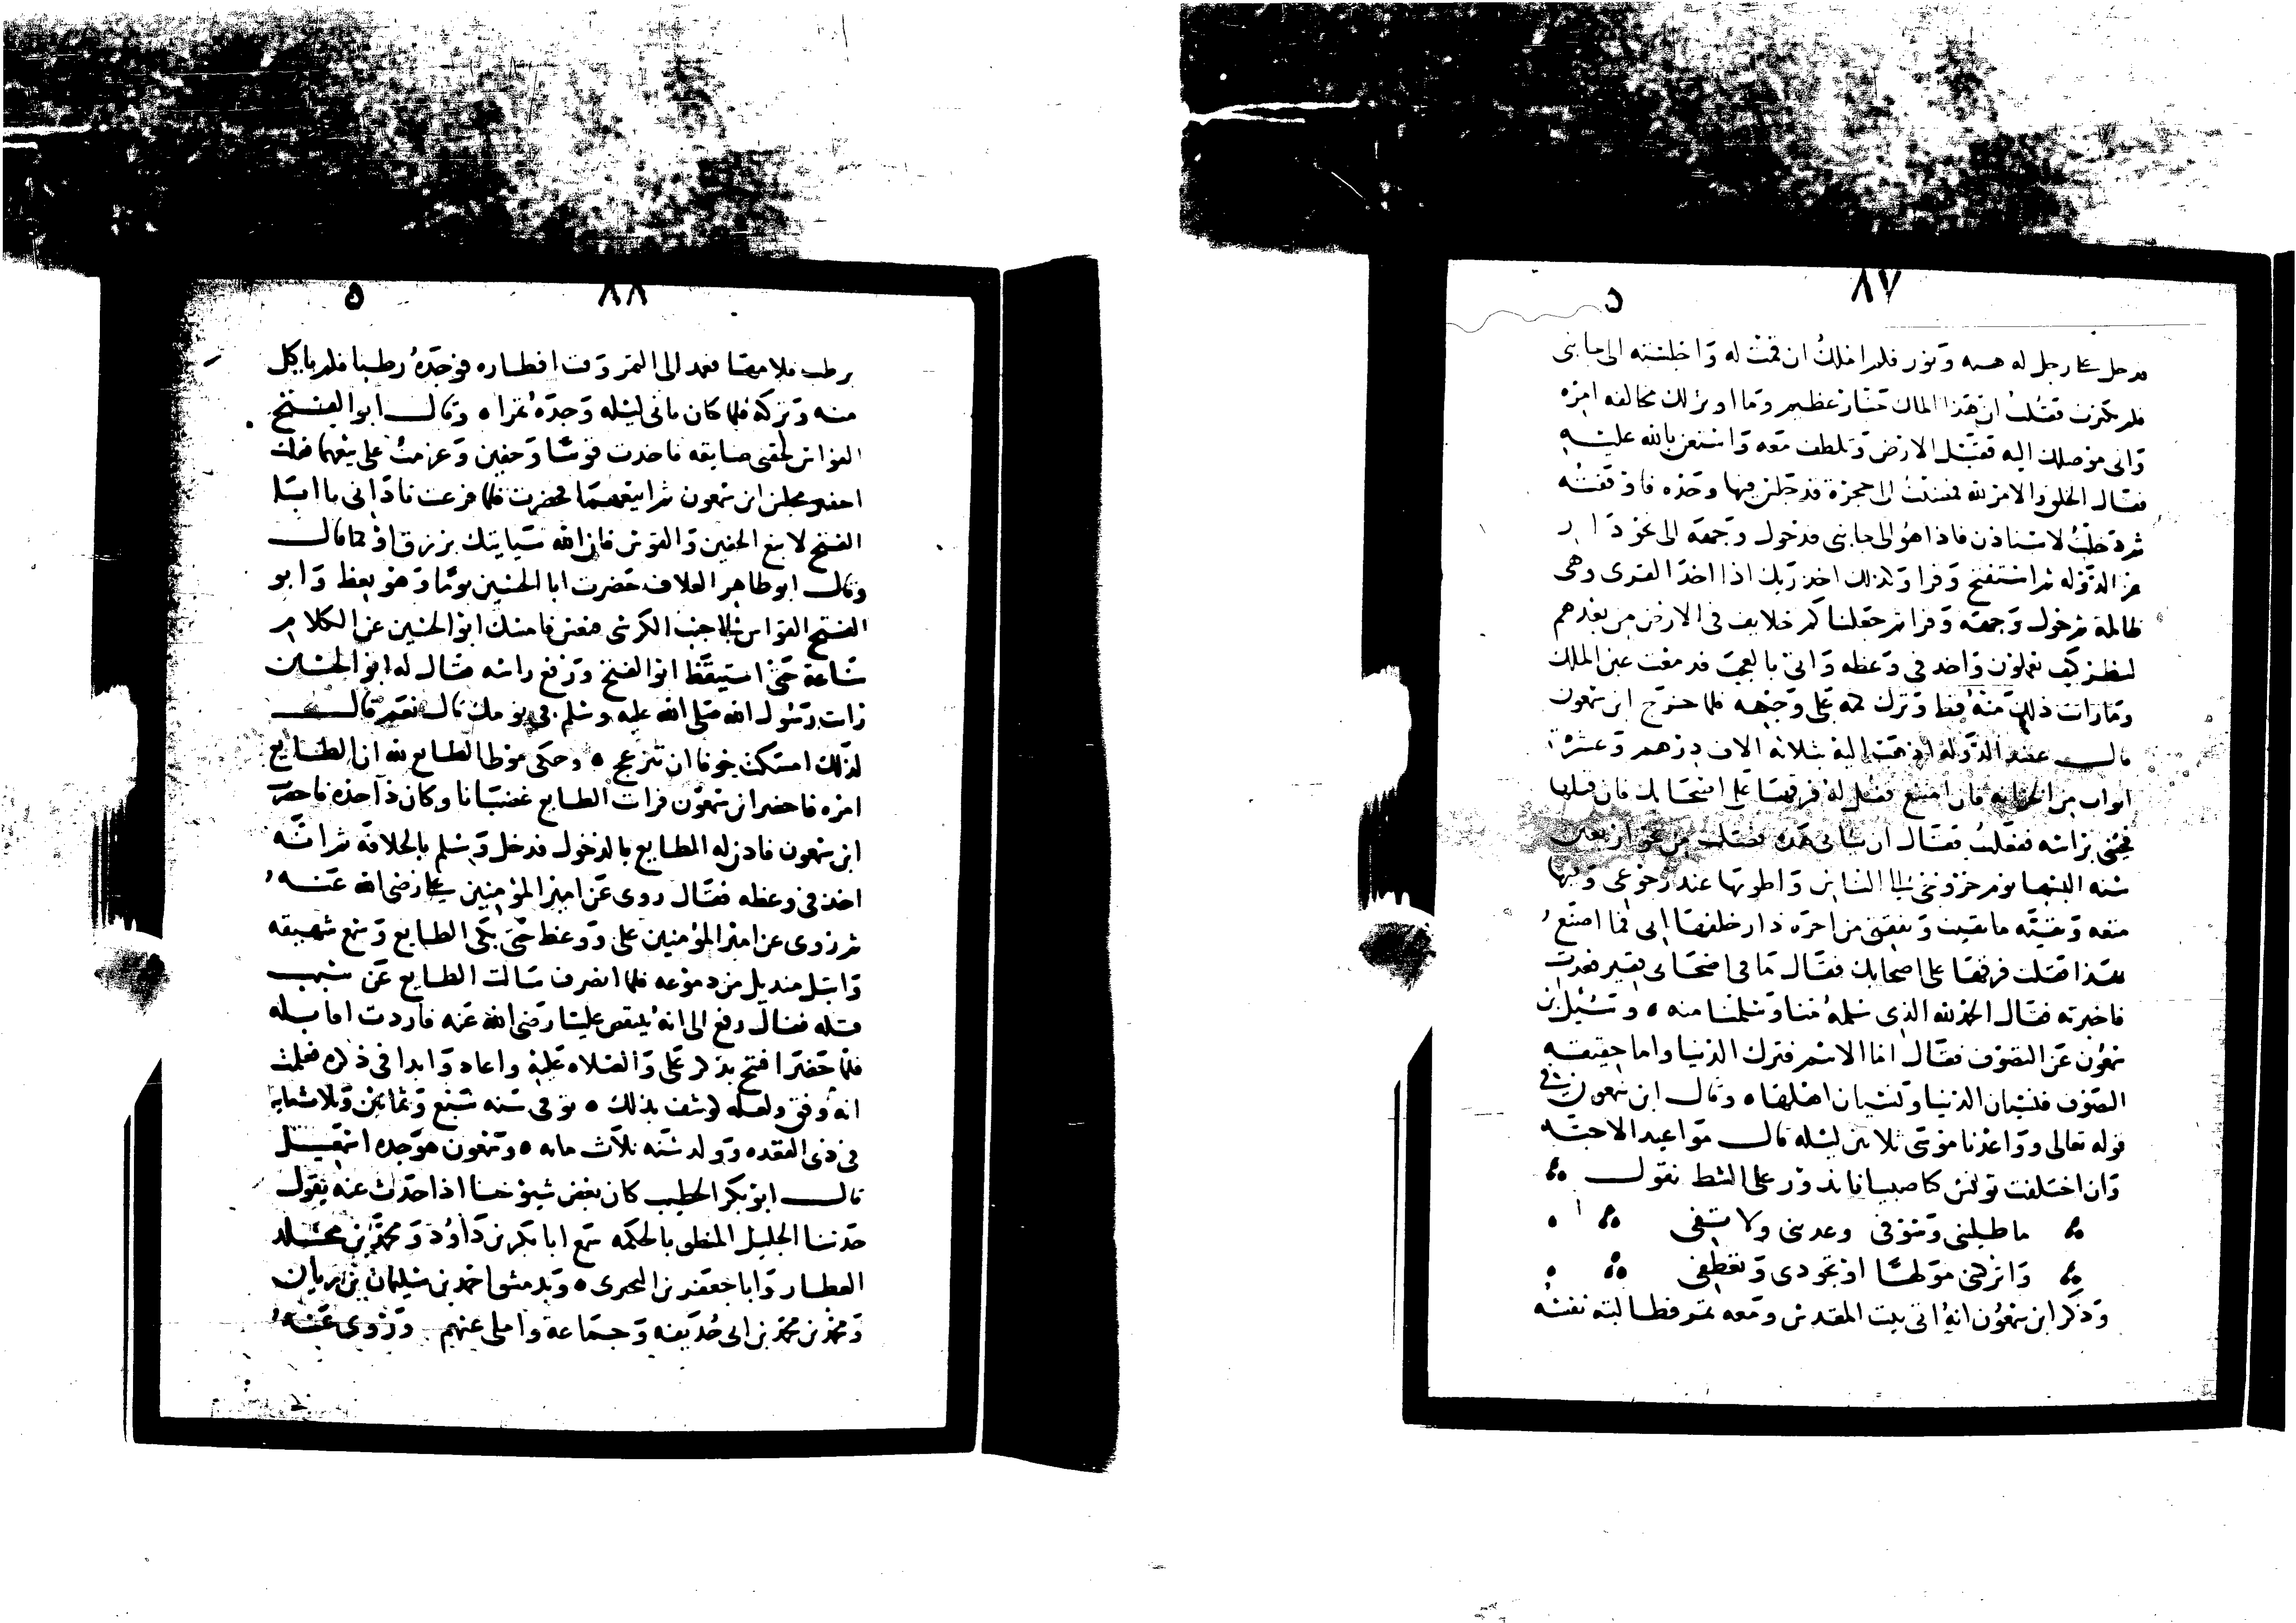 ٨٧
فدخل على رجل له هيبة ونور فلم املك ان قمت له واجلسته الى جانبى
فلم ينكر فقلت ان هذا الملك جبار عظيم وما اوثر لك مخالفة امره
وانى موصلك اليه فقبل الارض وتلطف معه واستعن بالله عليه
فقال الخلق والامر لله فمضيت الى حجرة قد جلس فيها وحده فاوقفته
ثم دخلت لاستاذن فاذا هو الى جانبى قد حول وجهه الى نحو دار
عز الدوله ثم استفتح وقرا وكذلك اخذ ربك اذا اخذ القرى وهى
ظالمة ثم حول وجهه وقرا ثم جعلناكم خلايف فى الارض من بعدهم
لننظر كيف تعملون واخذ فى وعظه واتى بالعجب فدمعت عين الملك
وما رايت ذلك منه قط وترك كمه على وجهه فلما خرج ابن سمعون
قال عضد الدوله اذهب اليه بثلاثة الاف درهم وعشرة
اثواب من الخزانه فان امتنع فقل له فرقها على اصحابك فان قبلها
فجئنى براسه ففعلت فقال ان ثيابى هذه فصلت من نحو اربعين
سنه البسها يوم خروجى الى الناس واطويها عند رجوعى وفيها
متعه وبقيه ما بقيت ونفقتى من اجرة دار خلفها ابى فما اصنع
بهذا فقلت فرقها على اصحابك فقال ما فى اصحابى فقير فعدت
فاخبرته فقال الحمد لله الذى سلمه منا وسلمنا منه ٥ وسئل ابن
سمعون عن التصوف فقال اما الاسم فترك الدنيا واما حقيقة
التصوف فنسيان الدنيا ونسيان اهلها ٥ وقال ابن سمعون فى
قوله تعالى وواعدنا موسى ثلاثين ليله قال مواعيد الاحبه
وان اختلفت تونس كنا صبيانا ندور على الشط نقول
ماطلينى وسوفى وعدينى ولا تفى
واتركينى مولها او تجودى وتعطفى
وذكر ابن سمعون انه اتى بيت المقدس ومعه تمر فطالبته نفسه
٨٨
برطب فلامها فعمد الى التمر وقت افطاره فوجده رطبا فلم ياكل
منه وتركه فلما كان ثانى ليله وجده تمرا ٥ وقال ابو الفتح
القواس لحقتنى ضايقه فاخذت قوسا وخفين وعزمت على بيعهما فقلت
احضر مجلس ابن سمعون ثم ابيعهما فحضرت فلما فرغت نادانى يا ابا
الفتح لا تبع الخفين والقوس فان الله سياتيك برزق او كما قال
وقال ابو طاهر العلاف حضرت ابا الحسين يوما وهو يعظ وابو
الفتح القواس الى جنب الكرسى فنعس فامسك ابو الحسين عن الكلام
ساعة حتى استيقظ ابو الفتح ورفع راسه فقال له ابو الحسين
رايت رسول الله صلى الله عليه وسلم فى نومك قال نعم قال
لذلك امسكت خوفا ان تنزعج ٥ وحكى مولى الطايع لله ان الطايع
امره فاحضر ابن سمعون فرايت الطايع غضبانا وكان ذا حده فاحضر
ابن سمعون فاذن له الطايع بالدخول فدخل وسلم بالخلافه ثم انه
اخذ فى وعظه فقال روى عن امير المؤمنين على رضى الله عنه
ثم روى عن امير المؤمنين على ووعظ حتى بكى الطايع وسمع شهيقه
وابتل منديل من دموعه فلما انصرف سالت الطايع عن سبب
طلبه فقال رفع الى انه ينتقص عليا رضى الله عنه فاردت اقابله
فلما حضر افتتح بذكر على والصلاه عليه واعاد وابدا فى ذكره فعلمت
انه وفق ولعله كوشف بذلك ٥ توفى سنه سبع وثمانين وثلاثمايه
فى ذى القعده وولد سنه ثلاث مايه ٥ وسمعون هو جده اسمعيل
قال ابو بكر الخطيب كان بعض شيوخنا اذا حدث عنه يقول
حدثنا الجليل المنطق بالحكمه سمع ابا بكر بن داود ومحمد بن مخلد
العطار وابا جعفر بن البحترى ٥ وبدمشق احمد بن سليمان بن زبان
ومحمد بن محمد بن ابى حذيفه وجماعة واملى عنهم وروى عنه